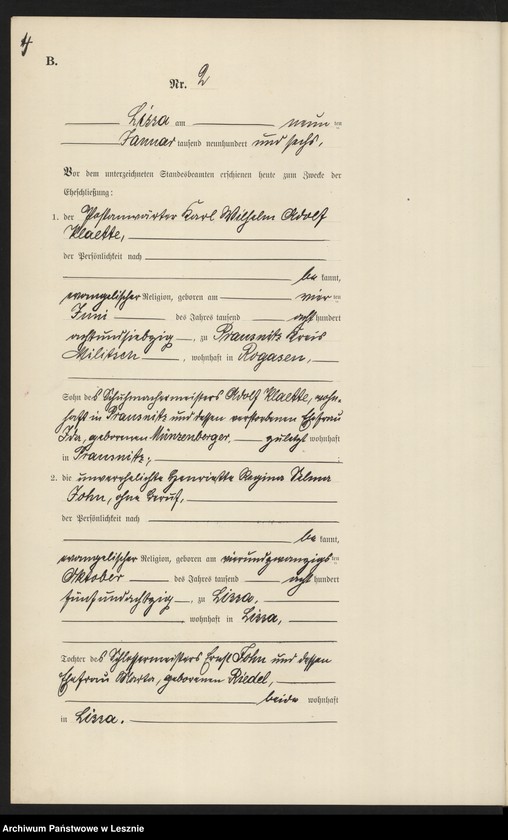 4
B.
Nr. 2
Lissa am neun ten
Januar tausend neunhundert und sechs.
Vor dem unterzeichneten Standesbeamten erschienen heute zum Zwecke der
Eheschließung:
1. der Postanwärter Karl Wilhelm Adolf
Klaette,
der Persönlichkeit nach
be kannt,
evangelischer Religion, geboren am vier ten
Juni des Jahres tausend acht hundert
achtundsiebzig, zu Prausnitz Kreis
Militsch, wohnhaft in Rogasen,
Sohn des Schuhmachermeisters Adolf Klaette, wohn-
haft in Prausnitz und dessen verstorbenen Ehefrau
Ida, geborenen Münzenberger, zuletzt wohnhaft
in Prausnitz;
2. die unverehelichte Henriette Regina Selma
John, ohne Beruf,
der Persönlichkeit nach
be kannt,
evangelischer Religion, geboren am vierundzwanzigs ten
Oktober des Jahres tausend acht hundert
fünfundachtzig, zu Lissa,
wohnhaft in Lissa,
Tochter des Schlossermeisters Ernst John und dessen
Ehefrau Marta, geborenen Riedel,
beide wohnhaft
in Lissa.
Archiwum Państwowe w Lesznie